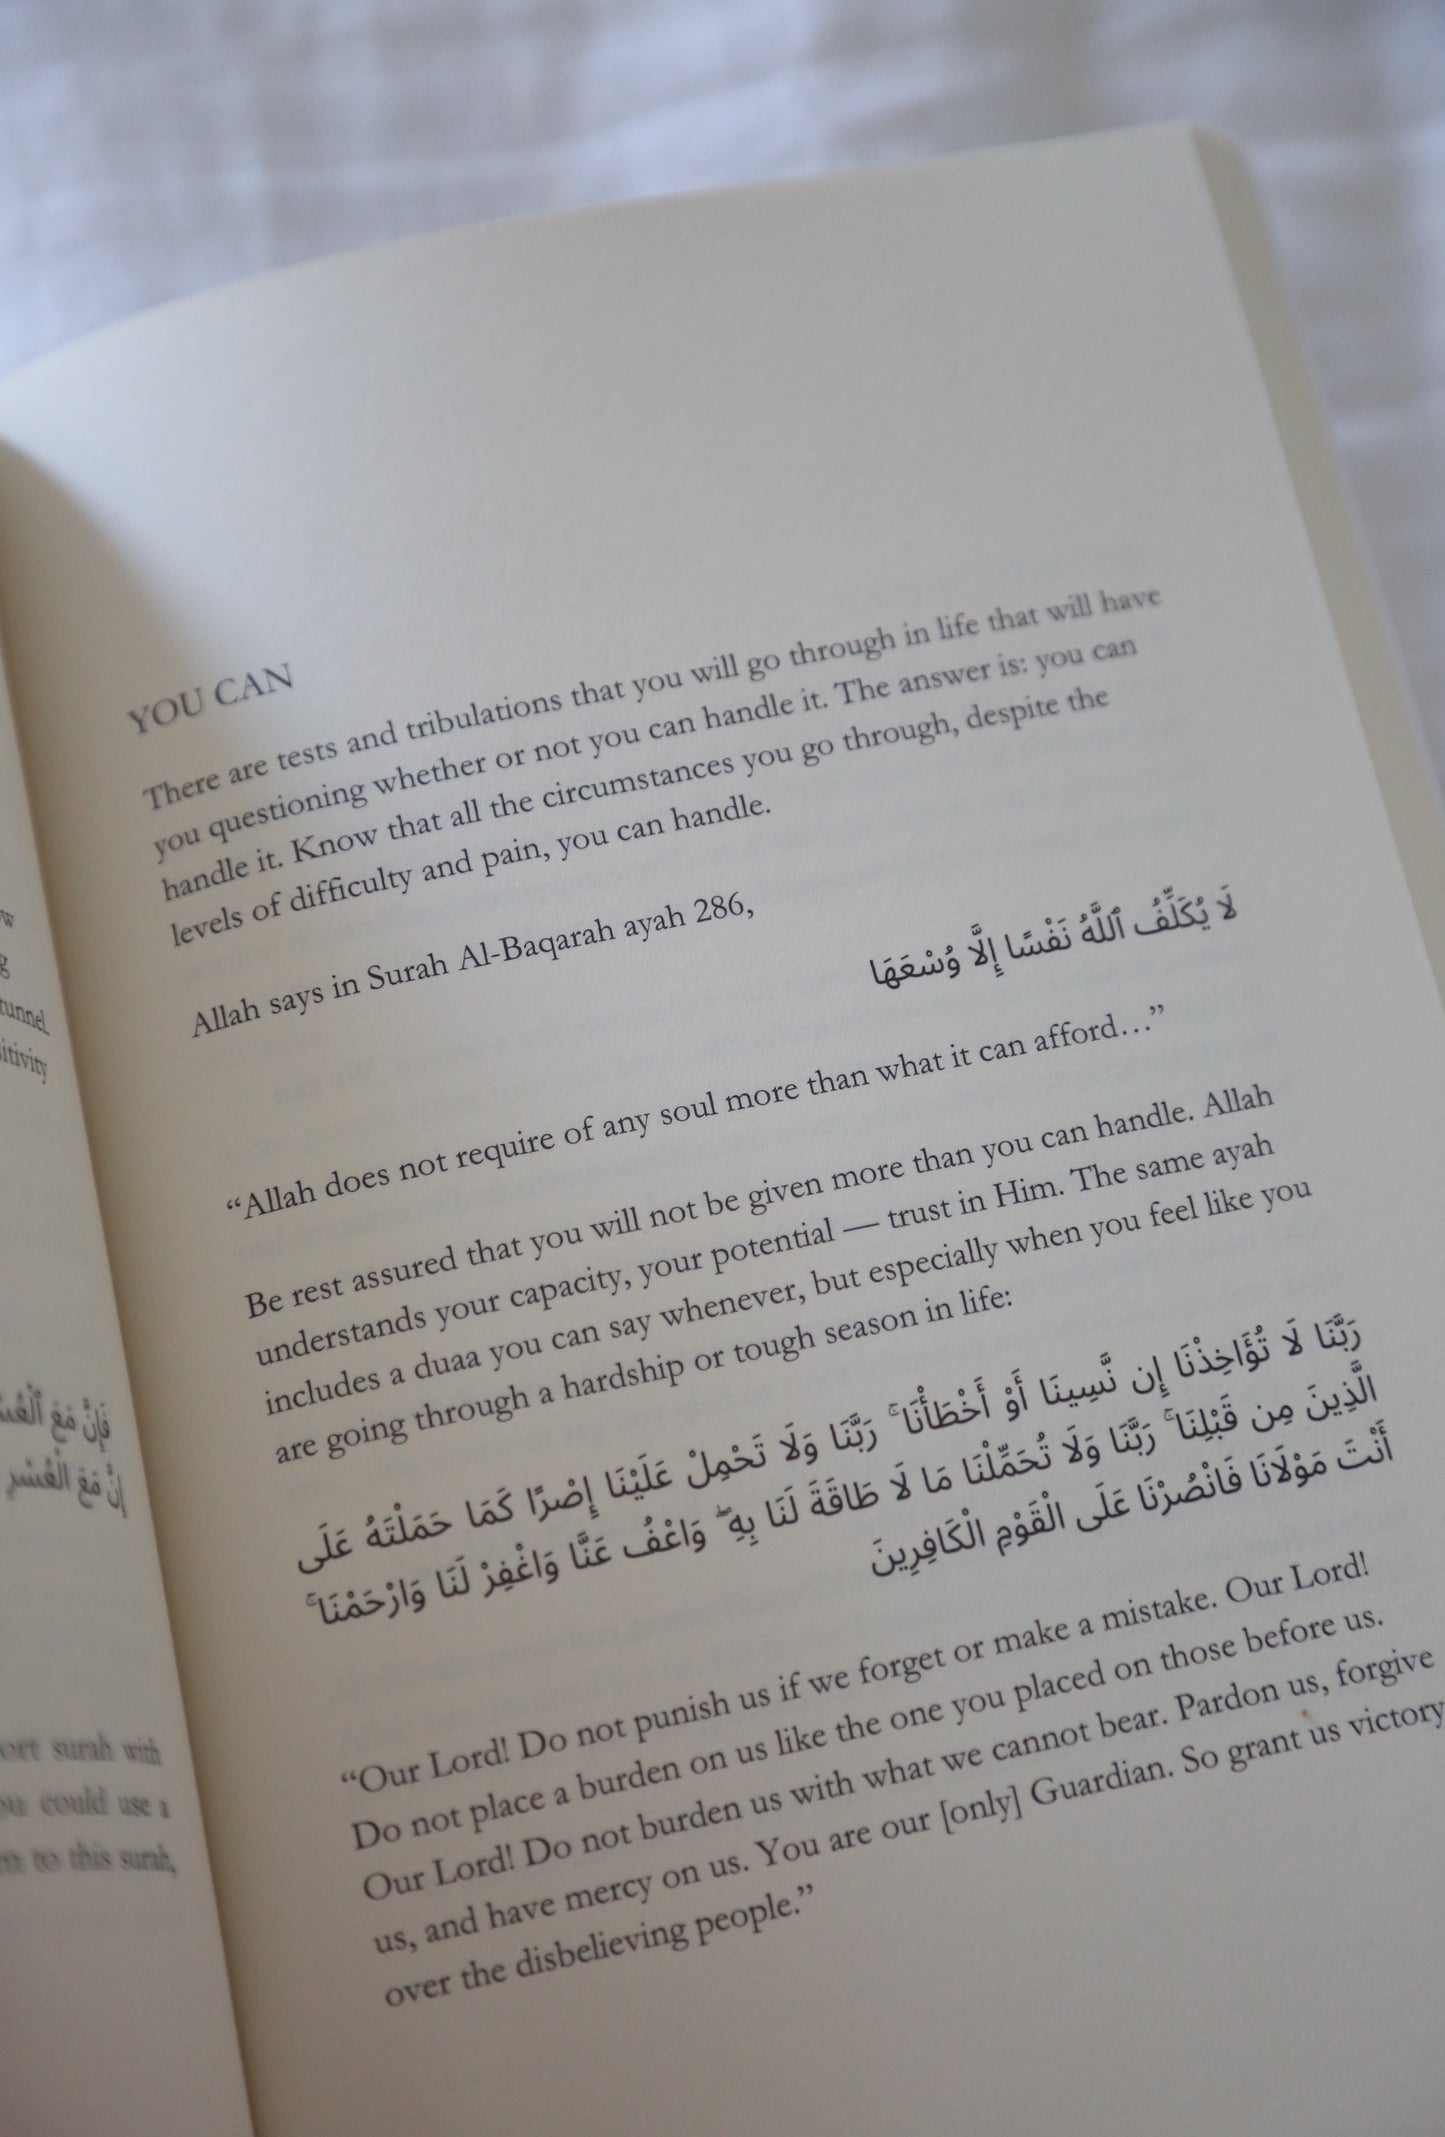 w
g
tunnel.
sitivity
فَإِنَّ مَعَ ٱلْعُسْ
إِنَّ مَعَ الْعُسْرِ
ort surah with
ou could use a
to this surah,
YOU CAN
There are tests and tribulations that you will go through in life that will have
you questioning whether or not you can handle it. The answer is: you can
handle it. Know that all the circumstances you go through, despite the
levels of difficulty and pain, you can handle.
Allah says in Surah Al-Baqarah ayah 286,
لَا يُكَلِّفُ ٱللَّهُ نَفْسًا إِلَّا وُسْعَهَا
“Allah does not require of any soul more than what it can afford…”
Be rest assured that you will not be given more than you can handle. Allah
understands your capacity, your potential — trust in Him. The same ayah
includes a duaa you can say whenever, but especially when you feel like you
are going through a hardship or tough season in life:
رَبَّنَا لَا تُؤَاخِذْنَا إِن نَّسِينَا أَوْ أَخْطَأْنَا ۚ رَبَّنَا وَلَا تَحْمِلْ عَلَيْنَا إِصْرًا كَمَا حَمَلْتَهُ عَلَى
الَّذِينَ مِن قَبْلِنَا ۚ رَبَّنَا وَلَا تُحَمِّلْنَا مَا لَا طَاقَةَ لَنَا بِهِ ۖ وَاعْفُ عَنَّا وَاغْفِرْ لَنَا وَارْحَمْنَا ۚ
أَنْتَ مَوْلَانَا فَانْصُرْنَا عَلَى الْقَوْمِ الْكَافِرِينَ
“Our Lord! Do not punish us if we forget or make a mistake. Our Lord!
Do not place a burden on us like the one you placed on those before us.
Our Lord! Do not burden us with what we cannot bear. Pardon us, forgive
us, and have mercy on us. You are our [only] Guardian. So grant us victory
over the disbelieving people.”